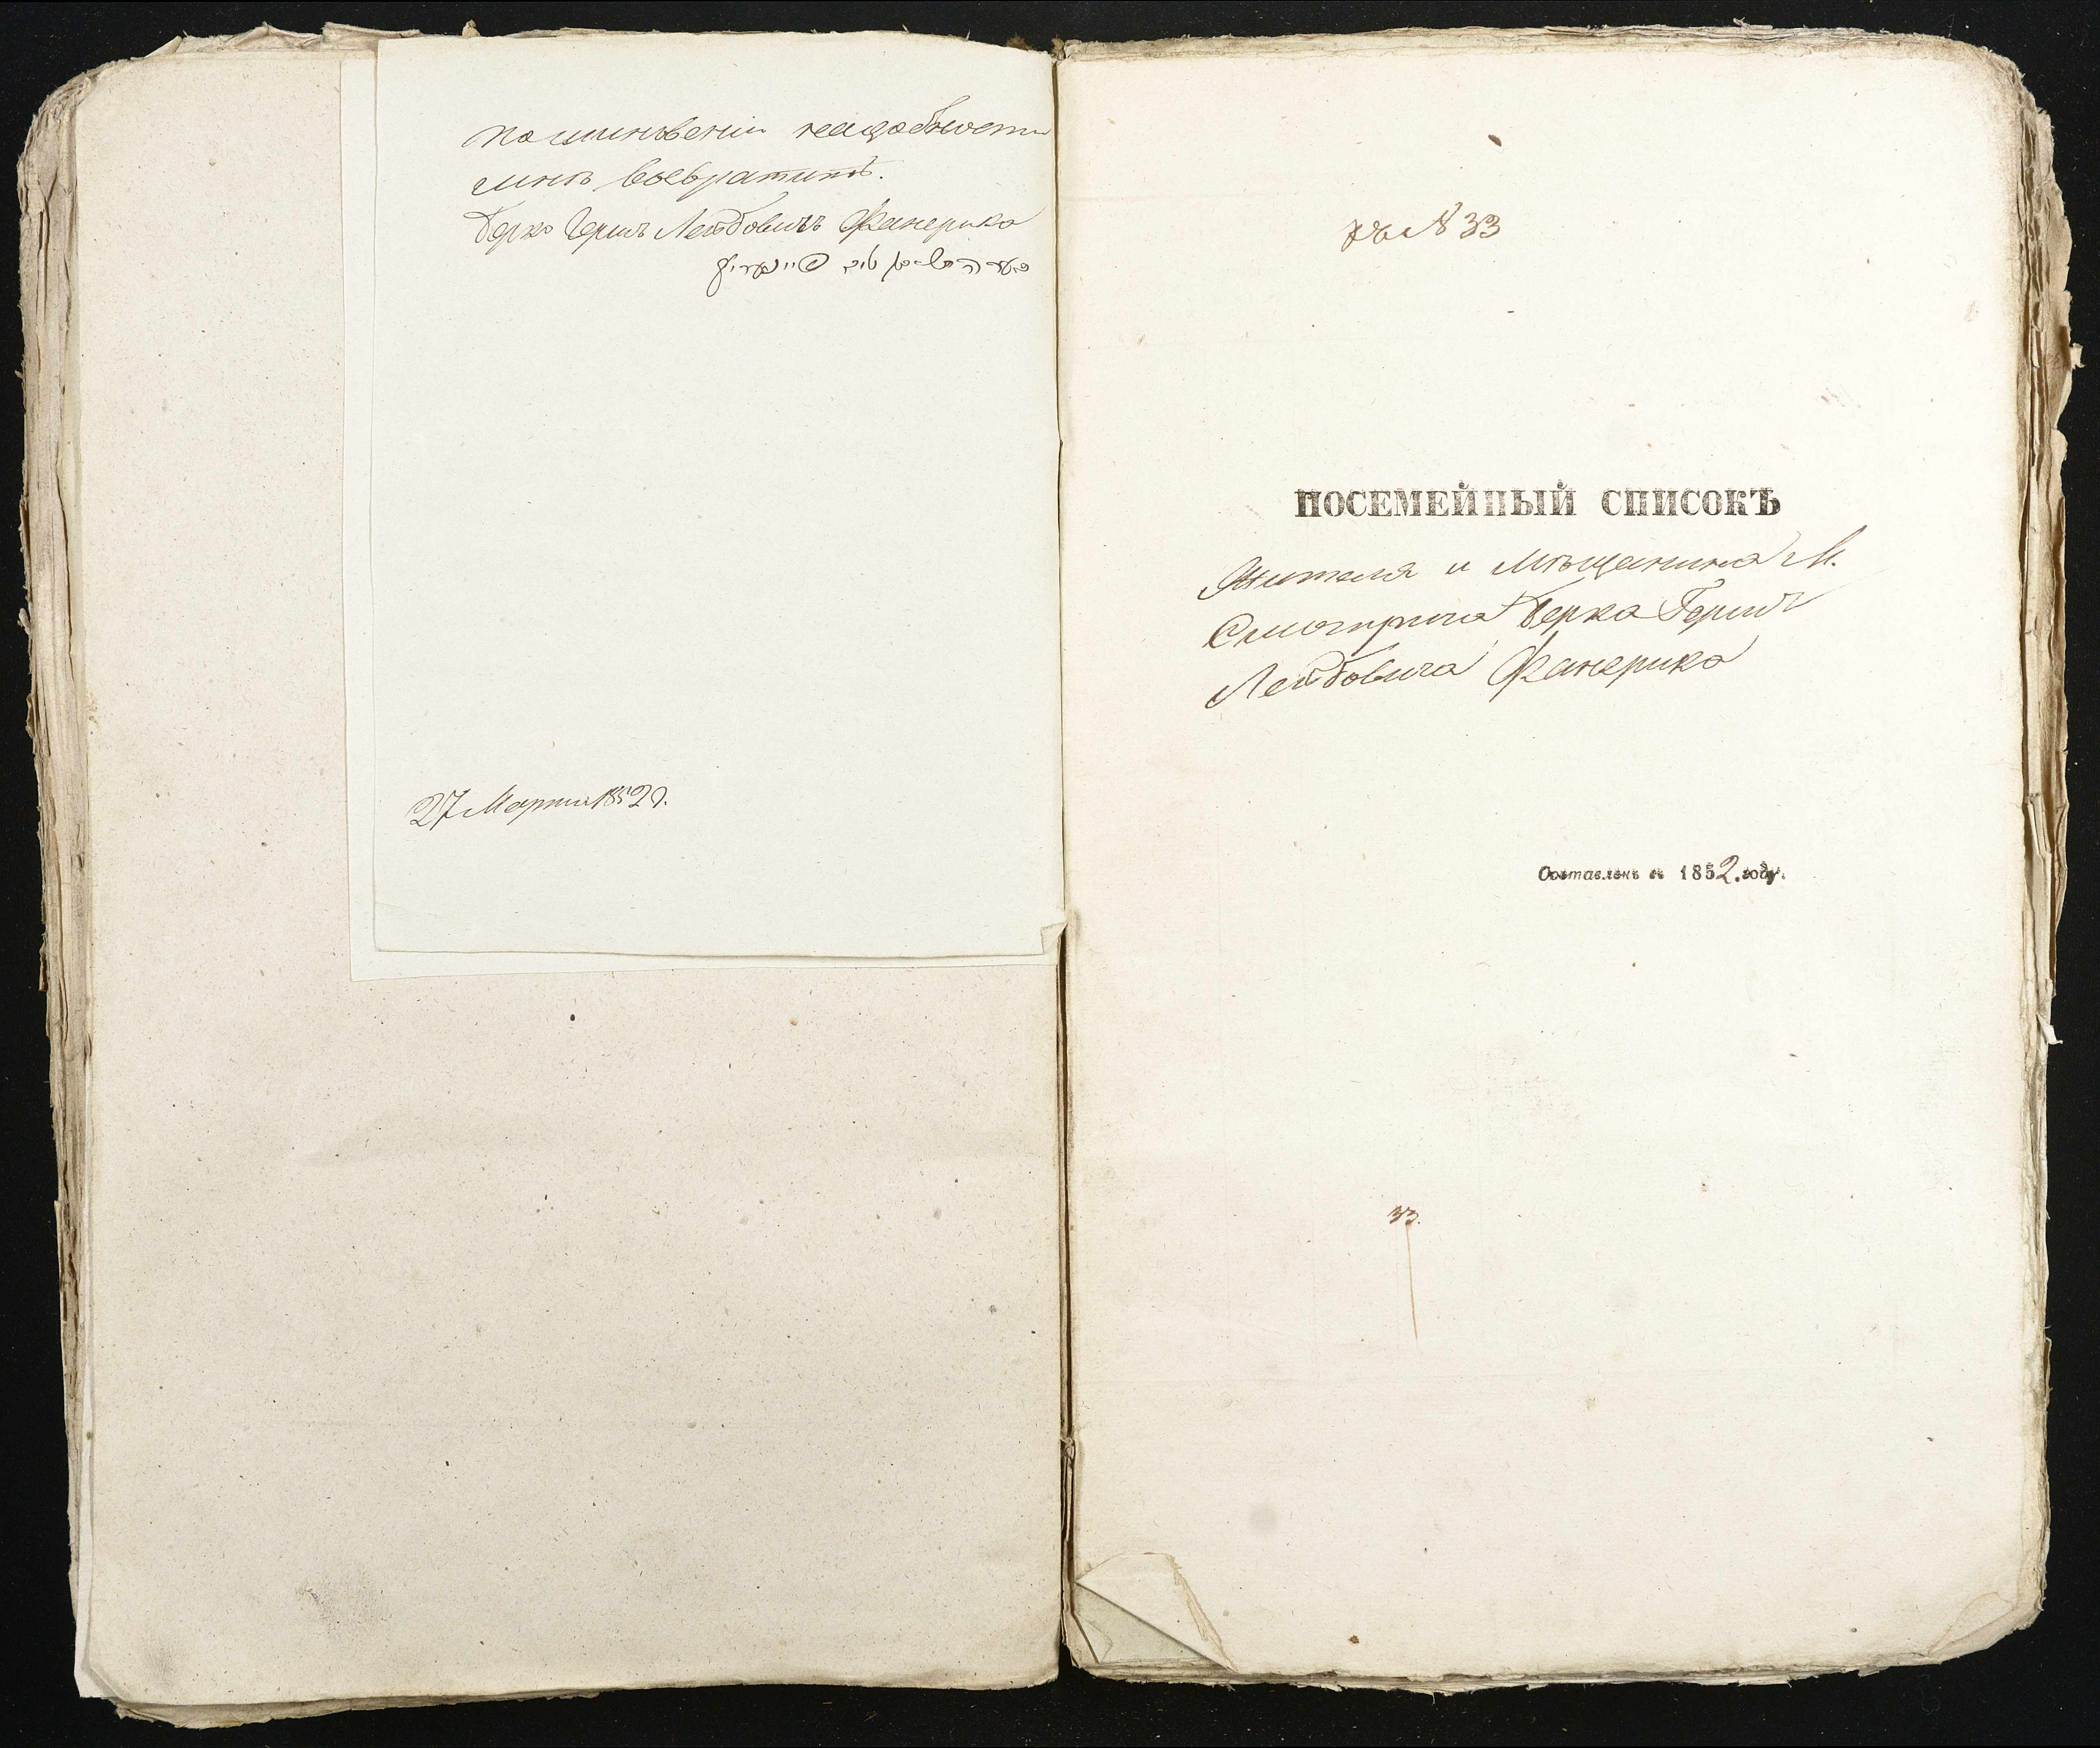 по миновеніи надобности
мнѣ возвратить.
Берко Гершъ Лейбовичъ Фанерика
27 Марта 1852 г.
къ № 33
ПОСЕМЕЙНЫЙ СПИСОКЪ
Жителя и мѣщанина М.
Смотрича Берка Герша
Лейбовича Фанерика
Составленъ въ 1852. году.
33.